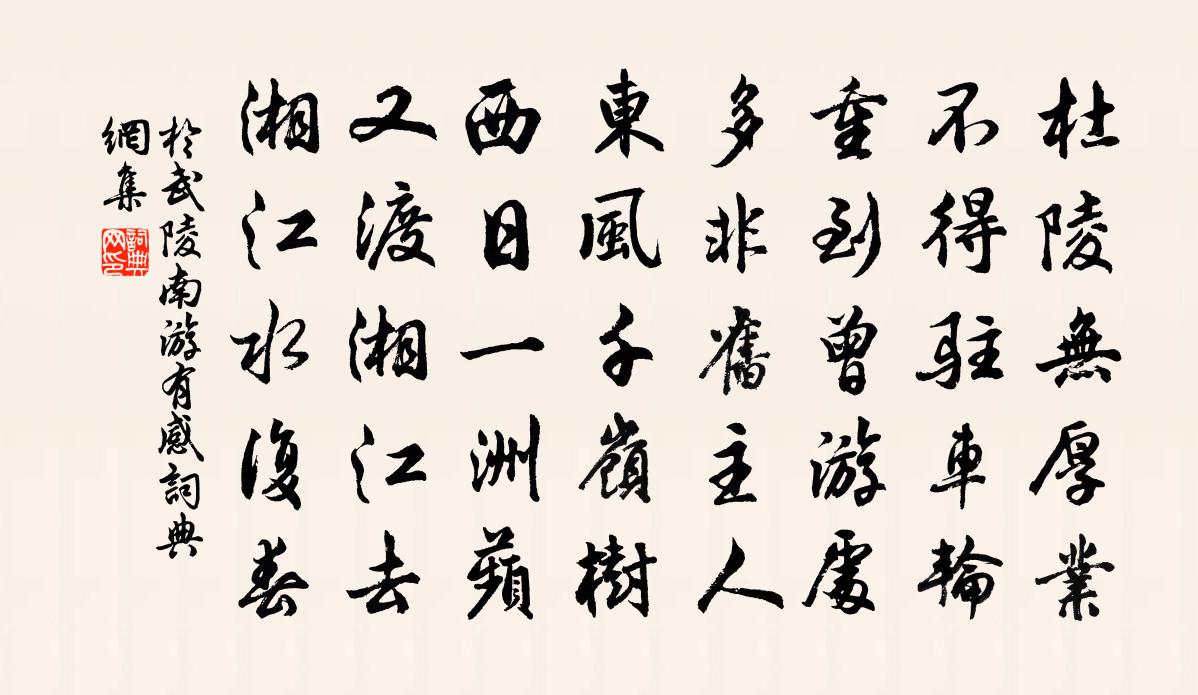 杜陵無厚業
不得駐車輪
重到曾游處
多非舊主人
東風千嶺樹
西日一洲蘋
又渡湘江去
湘江水復春
於武陵南游有感詞典
網集
詞典
网印